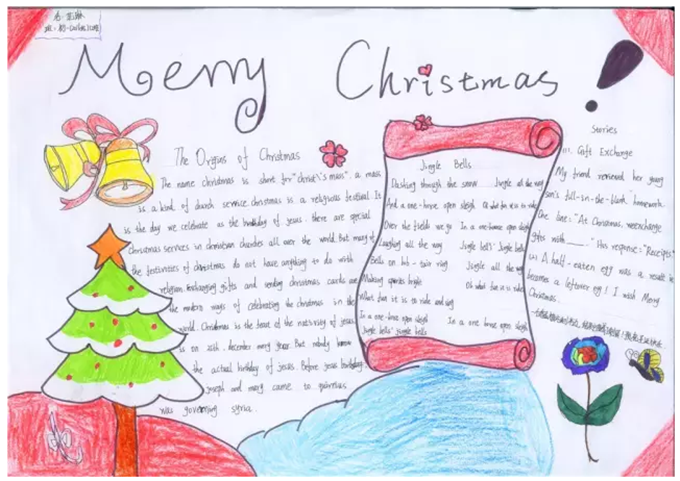 Merry Christmas!
The Origins of Christmas
The name christmas is short for "christ's mass". a mass
is a kind of church service christmas is a religious festival. It
is the day we celebrate as the birthday of jesus. there are special
Christmas services in christian churches all over the world. But many of
the festivities of christmas do not have anything to do with
religion. exchanging gifts and sending christmas cards are
the modern ways of celebrating the christmas in the
world. Christmas is the feast of the nativity of jesus
is on 25th. december every year. But nobody knows
the actual birthday of jesus. Before jesus birthday,
joseph and mary came to quirnius
was governing syria.
Jingle Bells
Dashing through the snow Jingle all the way
And a one-horse open sleigh Oh what fun it is to ride
Over the fields we go In a one-horse open sleigh
Laughing all the way Jingle bells' Jingle bells
Bells on bob-tain ring Jingle all the way
Making spirits bright Oh what fun it is ride
What fun it is to ride and sing
In a one-horse open sleigh In a one horse open sleigh
Jingle bells' jingle bells
Stories
Gift Exchange
My friend reviewed her young
son's fill-in-the-blank homework.
One line: "At Christmas, we exchange
gifts with ___." His response: "Receipts"
A half-eaten egg was a result in
becomes a leftover egg! I wish Merry
Christmas.